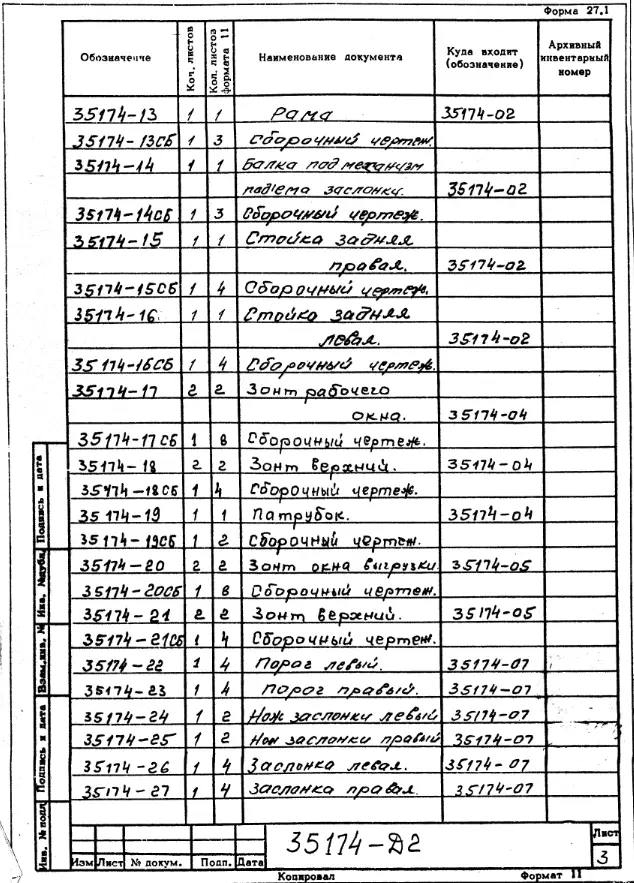 Форма 27.1
Обозначение Кол. листов Кол. листов формата 11 Наименование документа Куда входит (обозначение) Архивный инвентарный номер
35174-13 1 1 Рама 35174-02
35174-13СБ 1 3 Сборочный чертеж.
35174-14 1 1 Балка под механизм
подъема заслонки. 35174-02
35174-14СБ 1 3 Сборочный чертеж.
35174-15 1 1 Стойка задняя
правая. 35174-02
35174-15СБ 1 4 Сборочный чертеж.
35174-16. 1 1 Стойка задняя
левая. 35174-02
35174-16СБ 1 4 Сборочный чертеж.
35174-17 2 2 Зонт рабочего
окна. 35174-04
35174-17СБ 1 8 Сборочный чертеж.
35174-18 2 2 Зонт верхний. 35174-04
35174-18СБ 1 4 Сборочный чертеж.
35174-19 1 1 Патрубок. 35174-04
35174-19СБ 1 2 Сборочный чертеж.
35174-20 2 2 Зонт окна выгрузки 35174-05
35174-20СБ 1 8 Сборочный чертеж.
35174-21 2 2 Зонт верхний. 35174-05
35174-21СБ 1 4 Сборочный чертеж.
35174-22 1 4 Порог левый. 35174-07
35174-23 1 4 Порог правый. 35174-07
35174-24 1 2 Нож заслонки левый 35174-07
35174-25 1 2 Нож заслонки правый 35174-07
35174-26 1 4 Заслонка левая. 35174-07
35174-27 1 4 Заслонка правая. 35174-07
Подпись и дата
Инв. № дубл.
Взам. инв. №
Подпись и дата
Инв. № подл.
35174-Д2
Лист
3
Изм Лист № докум. Подп. Дата
Копировал Формат 11